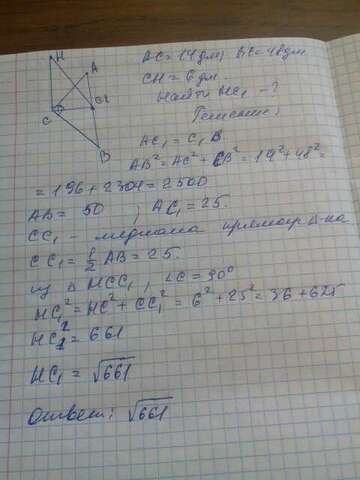 H
A
C
C1
B
AC = 14 дм, BC = 48 дм,
CH = 6 дм.
Найти HC₁ - ?
Решение:
AC₁ = C₁B
AB² = AC² + CB² = 14² + 48² =
= 196 + 2304 = 2500
AB = 50 , AC₁ = 25.
CC₁ - медиана прямоуг Δ-ка
CC₁ = 1/2 AB = 25.
из Δ HCC₁, ∠C = 90°
HC₁² = HC² + CC₁² = 6² + 25² = 36 + 625
HC₁² = 661
HC₁ = √661
Ответ: √661